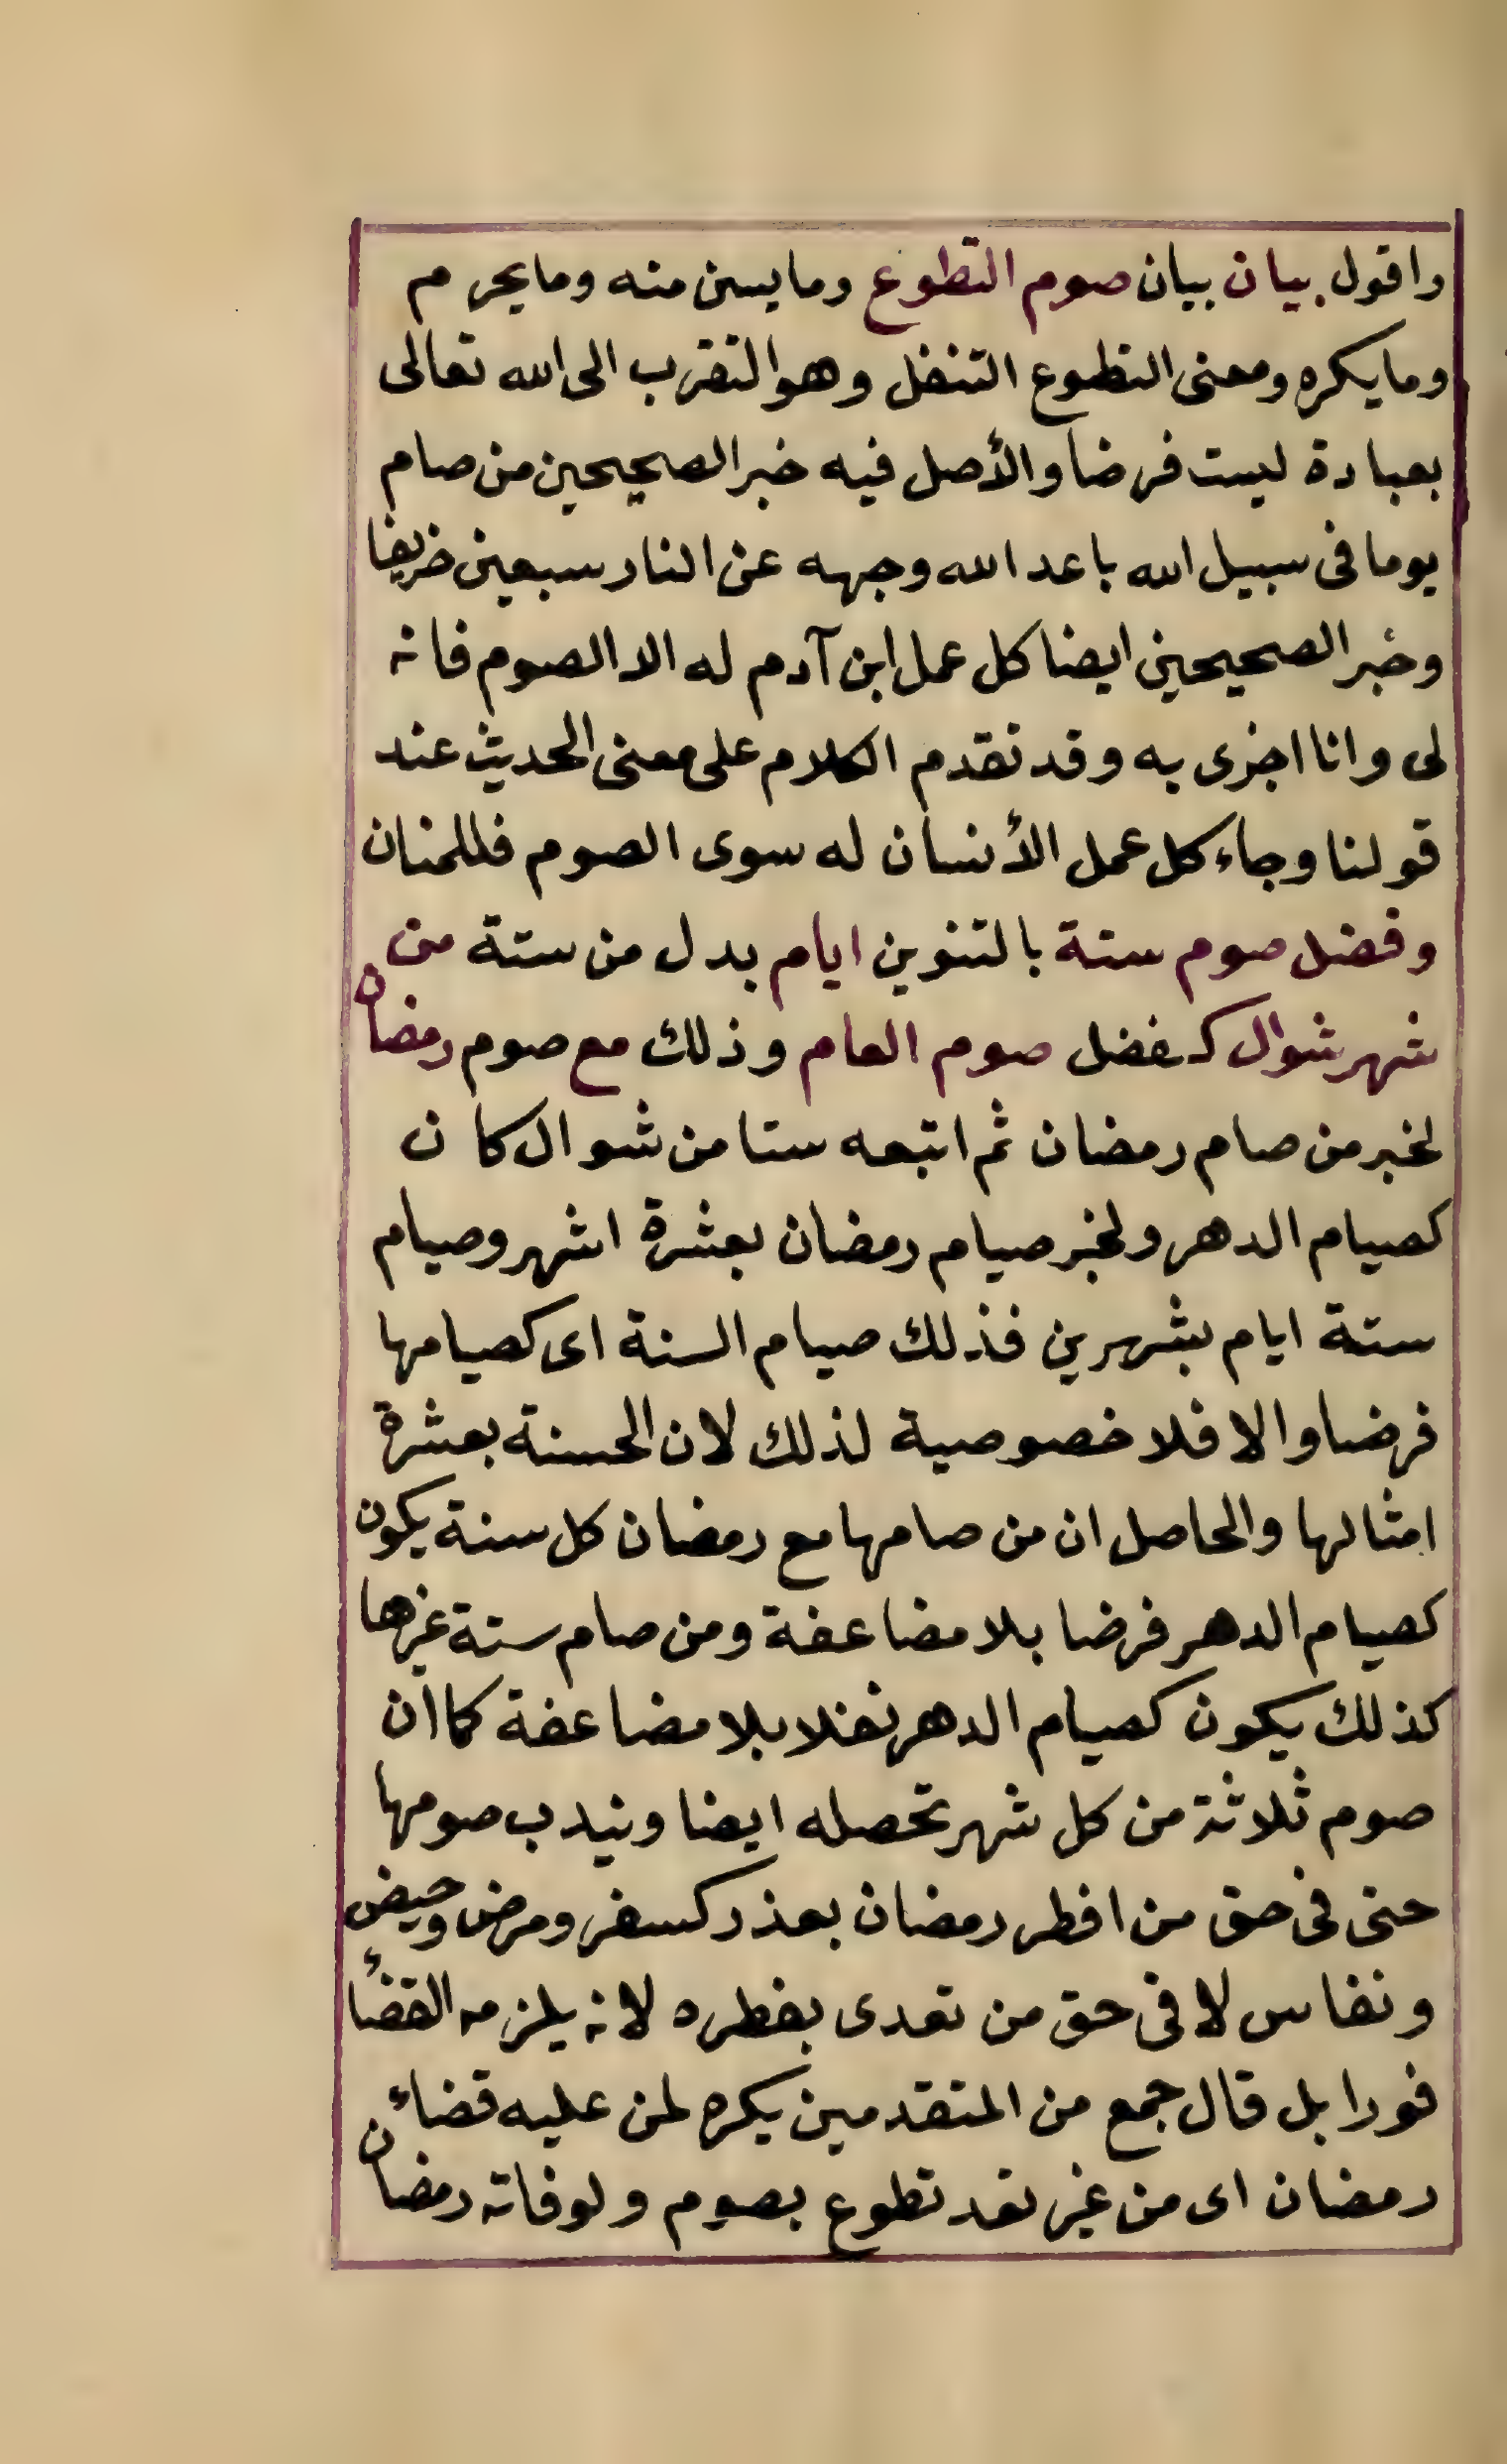 واقول بيان بيان صوم التطوع وما يسن منه وما يحرم
وما يكره ومعنى التطوع التنفل وهو التقرب الى الله تعالى
بعبادة ليست فرضا والأصل فيه خبر الصحيحين من صام
يوما فى سبيل الله باعد الله وجهه عن النار سبعين خريفا
وخبر الصحيحين ايضا كل عمل ابن آدم له الا الصوم فانه
لى وانا اجزى به وقد تقدم الكلام على معنى الحديث عند
قولنا وجاء كل عمل الأنسان له سوى الصوم فللمنان
وفضل صوم ستة بالتنوين ايام بدل من ستة من
شهر شوال كـ فضل صوم العام وذلك مع صوم رمضان
لخبر من صام رمضان ثم اتبعه ستا من شوال كان
كصيام الدهر ولخبر صيام رمضان بعشرة اشهر وصيام
ستة ايام بشهرين فذلك صيام السنة اى كصيامها
فرضا والا فلا خصوصية لذلك لان الحسنة بعشرة
امثالها والحاصل ان من صامها مع رمضان كل سنة يكون
كصيام الدهر فرضا بلا مضاعفة ومن صام ستة غيرها
كذلك يكون كصيام الدهر نفلا بلا مضاعفة كما ان
صوم ثلاثة من كل شهر تحصله ايضا ويندب صومها
حتى فى حق من افطر رمضان بعذر كسفر ومرض وحيض
ونفاس لا فى حق من تعدى بفطره لانه يلزمه القضاء
فورا بل قال جمع من المتقدمين يكره لمن عليه قضاء
رمضان اى من غير تعد تطوع بصوم ولو فاته رمضان